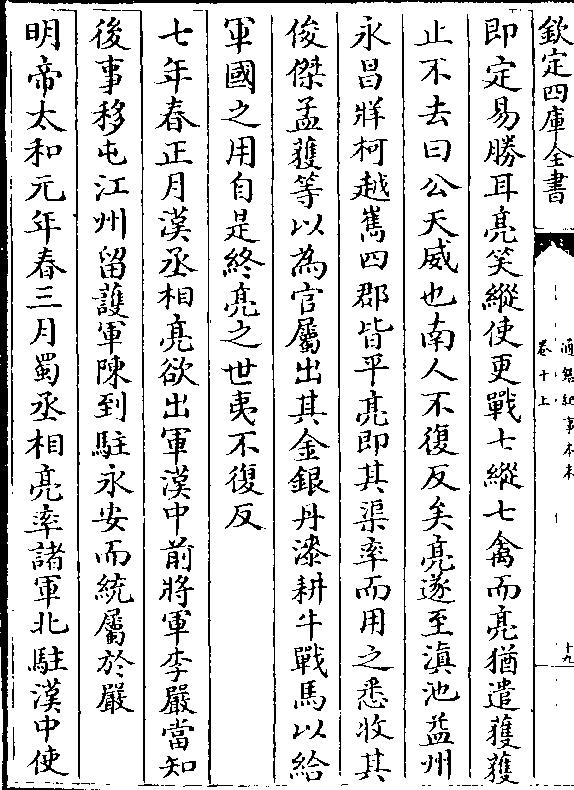 欽定四庫全書
通鑑紀事本末
卷十上
十九
即定易勝耳亮笑縱使更戰七縱七禽而亮猶遣獲獲
止不去曰公天威也南人不復反矣亮遂至滇池益州
永昌牂柯越嶲四郡皆平亮即其渠率而用之悉收其
俊傑孟獲等以為官屬出其金銀丹漆耕牛戰馬以給
軍國之用自是終亮之世夷不復反
七年春正月漢丞相亮欲出軍漢中前將軍李嚴當知
後事移屯江州留護軍陳到駐永安而統屬於嚴
明帝太和元年春三月蜀丞相亮率諸軍北駐漢中使